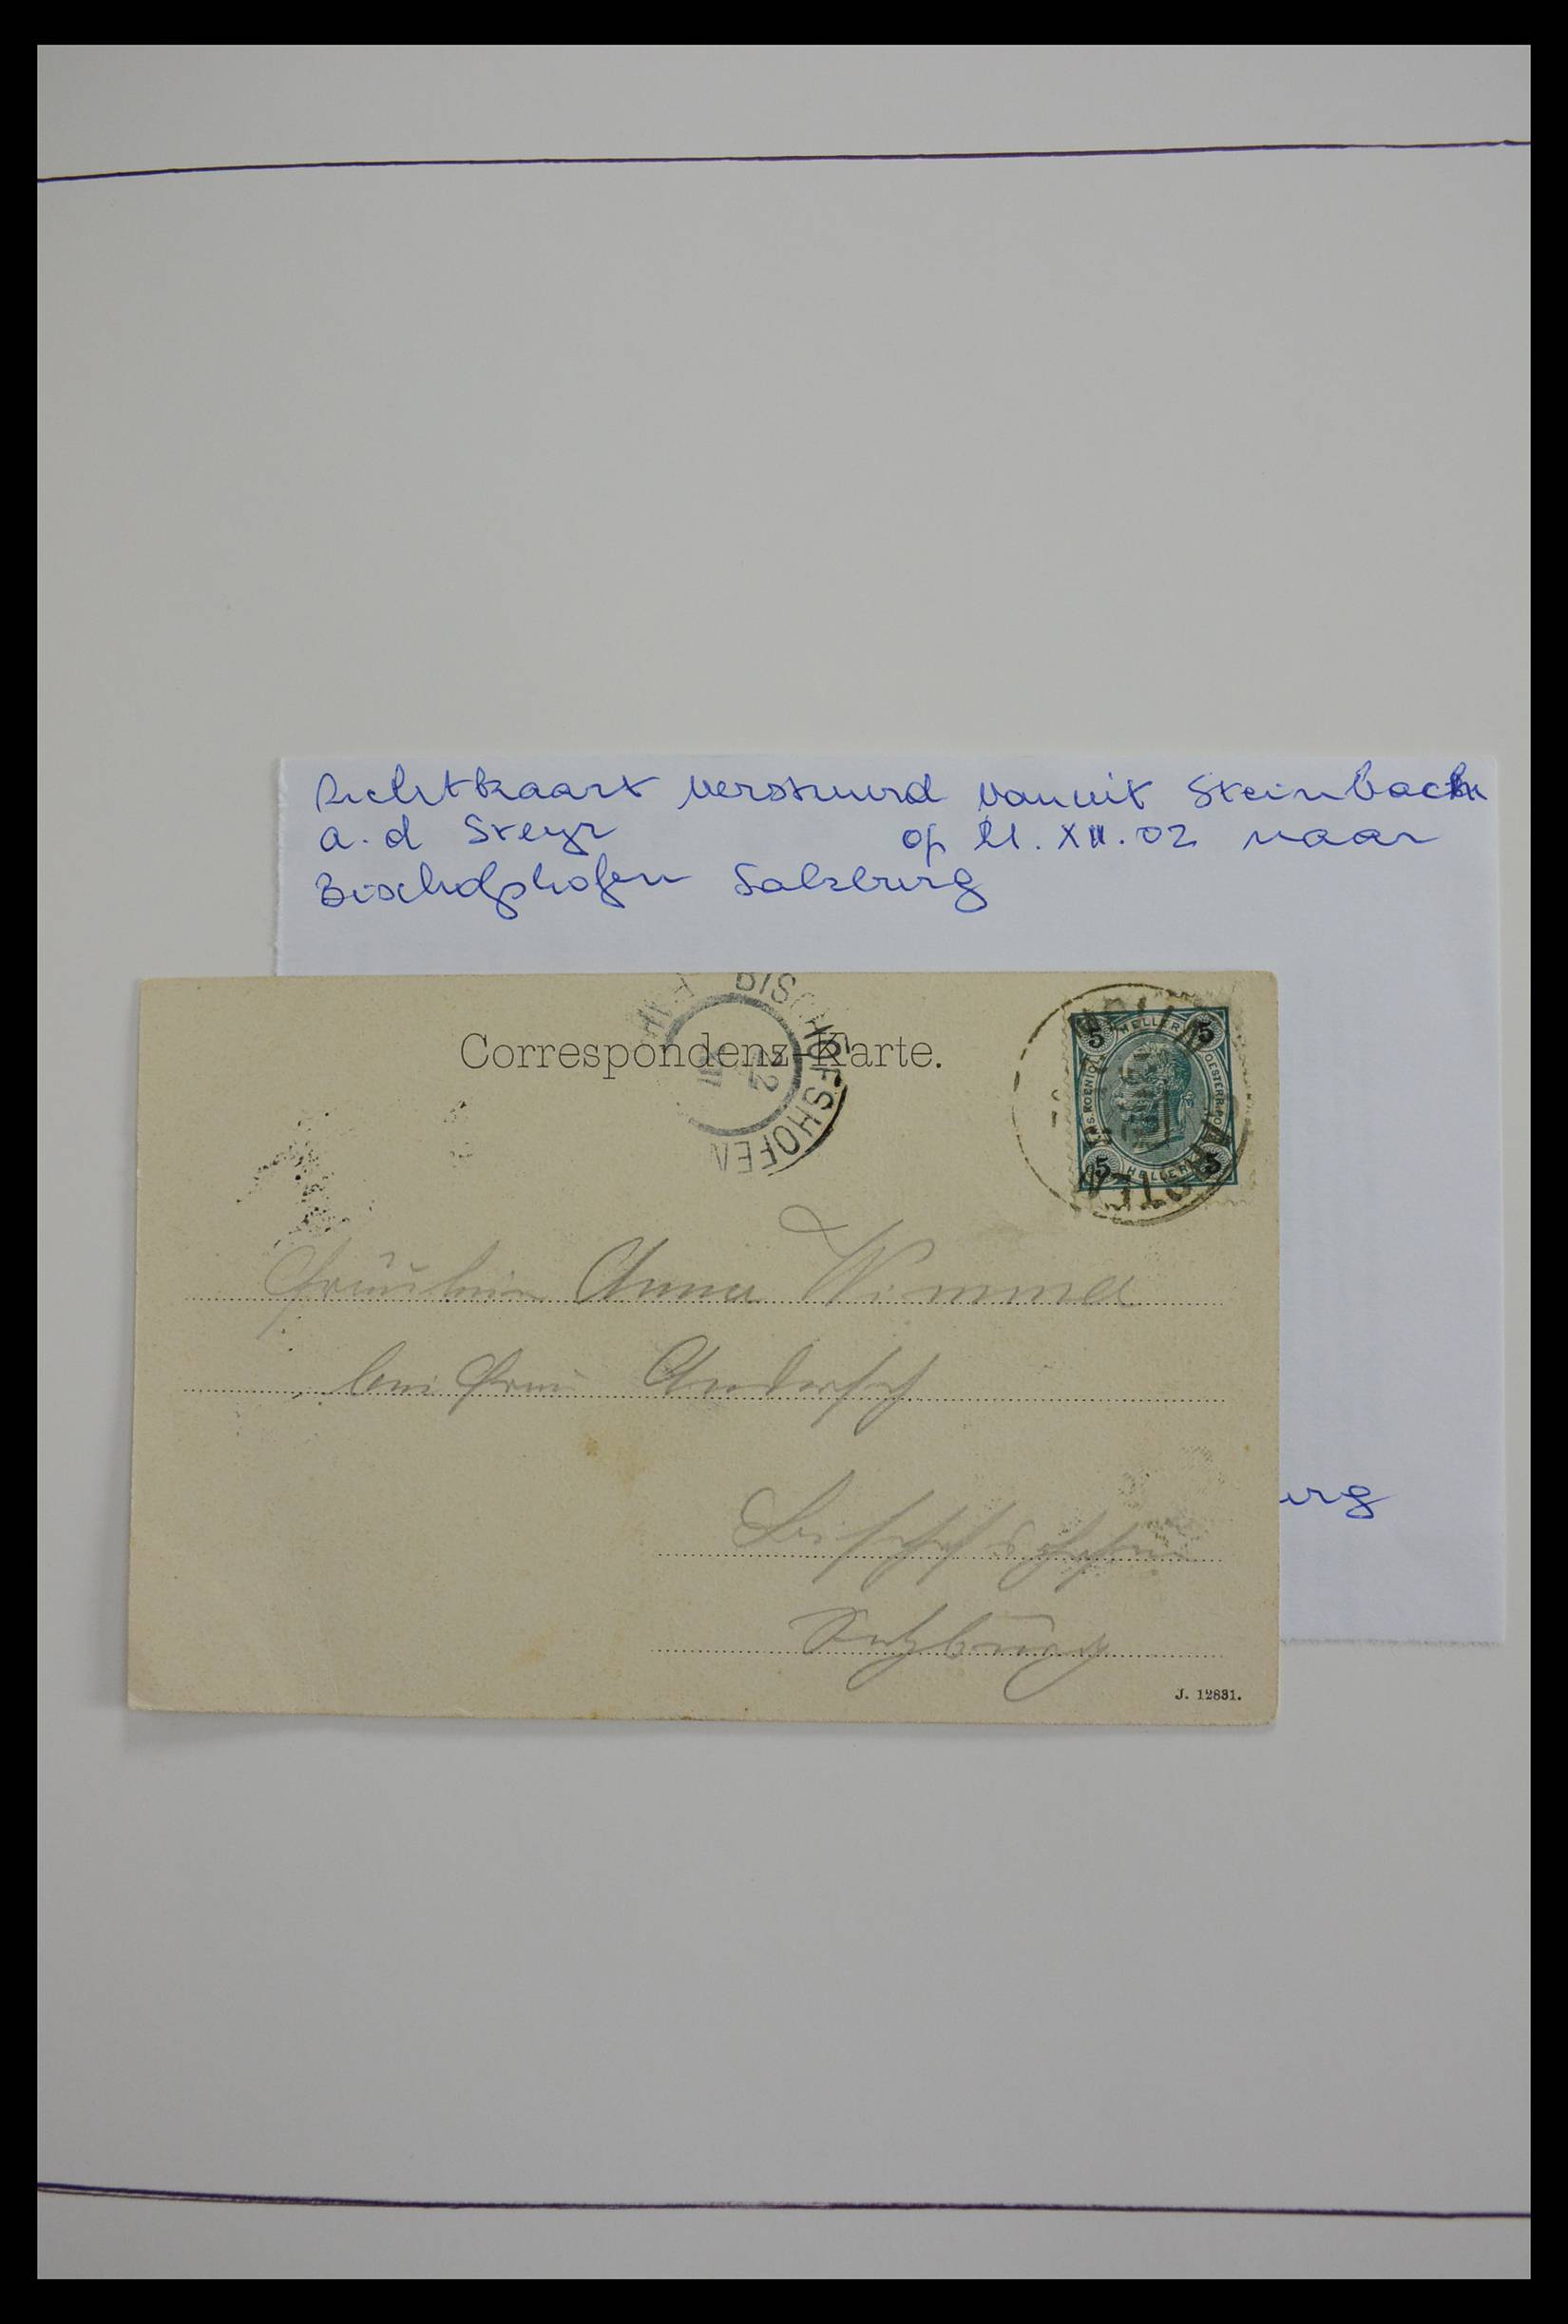 Richtkaart verstuurd vanuit Steinbach
a.d Steyr op 21.XII.02 naar
Bischofshofen Salzburg
BISCHOFSHOFEN
22
XII
Correspondenz-Karte.
5 HELLER 5
5 HELLER 5
Fräulein Anna Wimmer
bei Frau Andersch
Bischofshofen
Salzburg
urg
J. 12831.